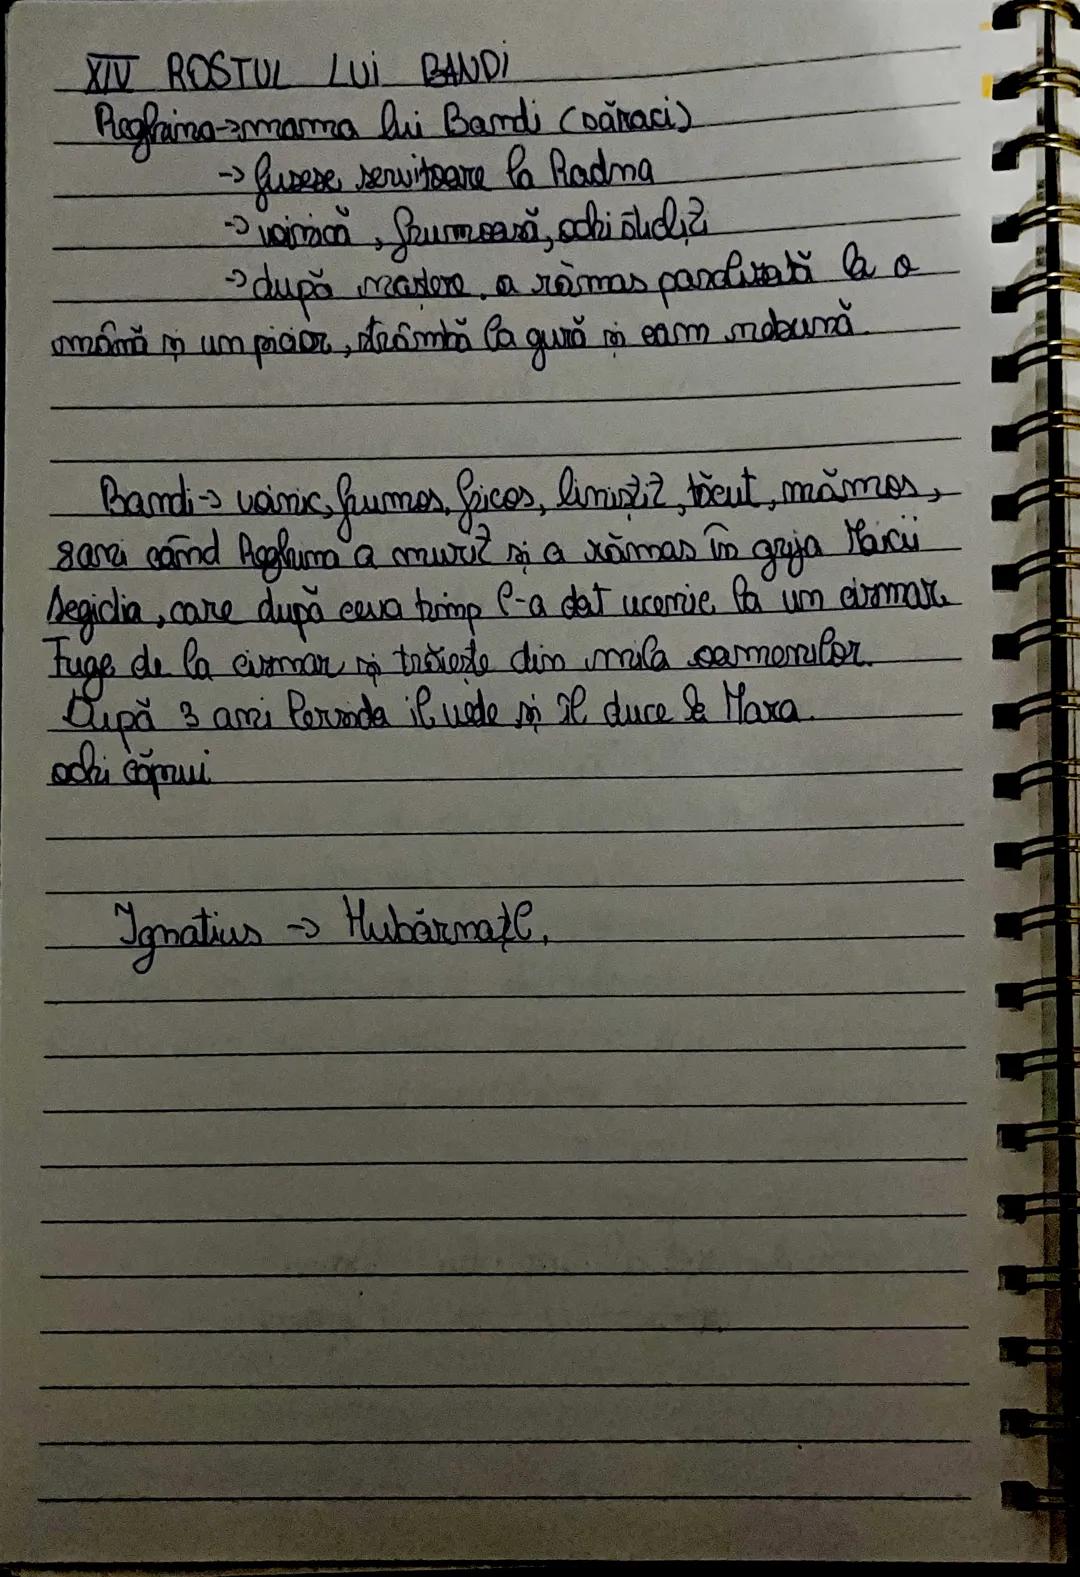 XIV ROSTUL LUi BANDi
Reghina->mama lui Bandi (săraci)
-> fusese servitoare la Radna
-> voinică, frumoasă, ochi sticliți
-> după naștere, a rămas paralizată la o
mână și un picior, strâmbă la gură și cam nebună.
Bandi-> voinic, frumos, fricos, liniștit, tăcut, mămos,
8 ani când Reghina a murit și a rămas în grija Maicii
Aegidia, care după ceva timp l-a dat ucenic la un cizmar.
Fuge de la cizmar și trăiește din mila oamenilor.
După 3 ani Persida îl vede și îl duce la Mara.
ochi căprui
Ignatius -> Hubărnațl,